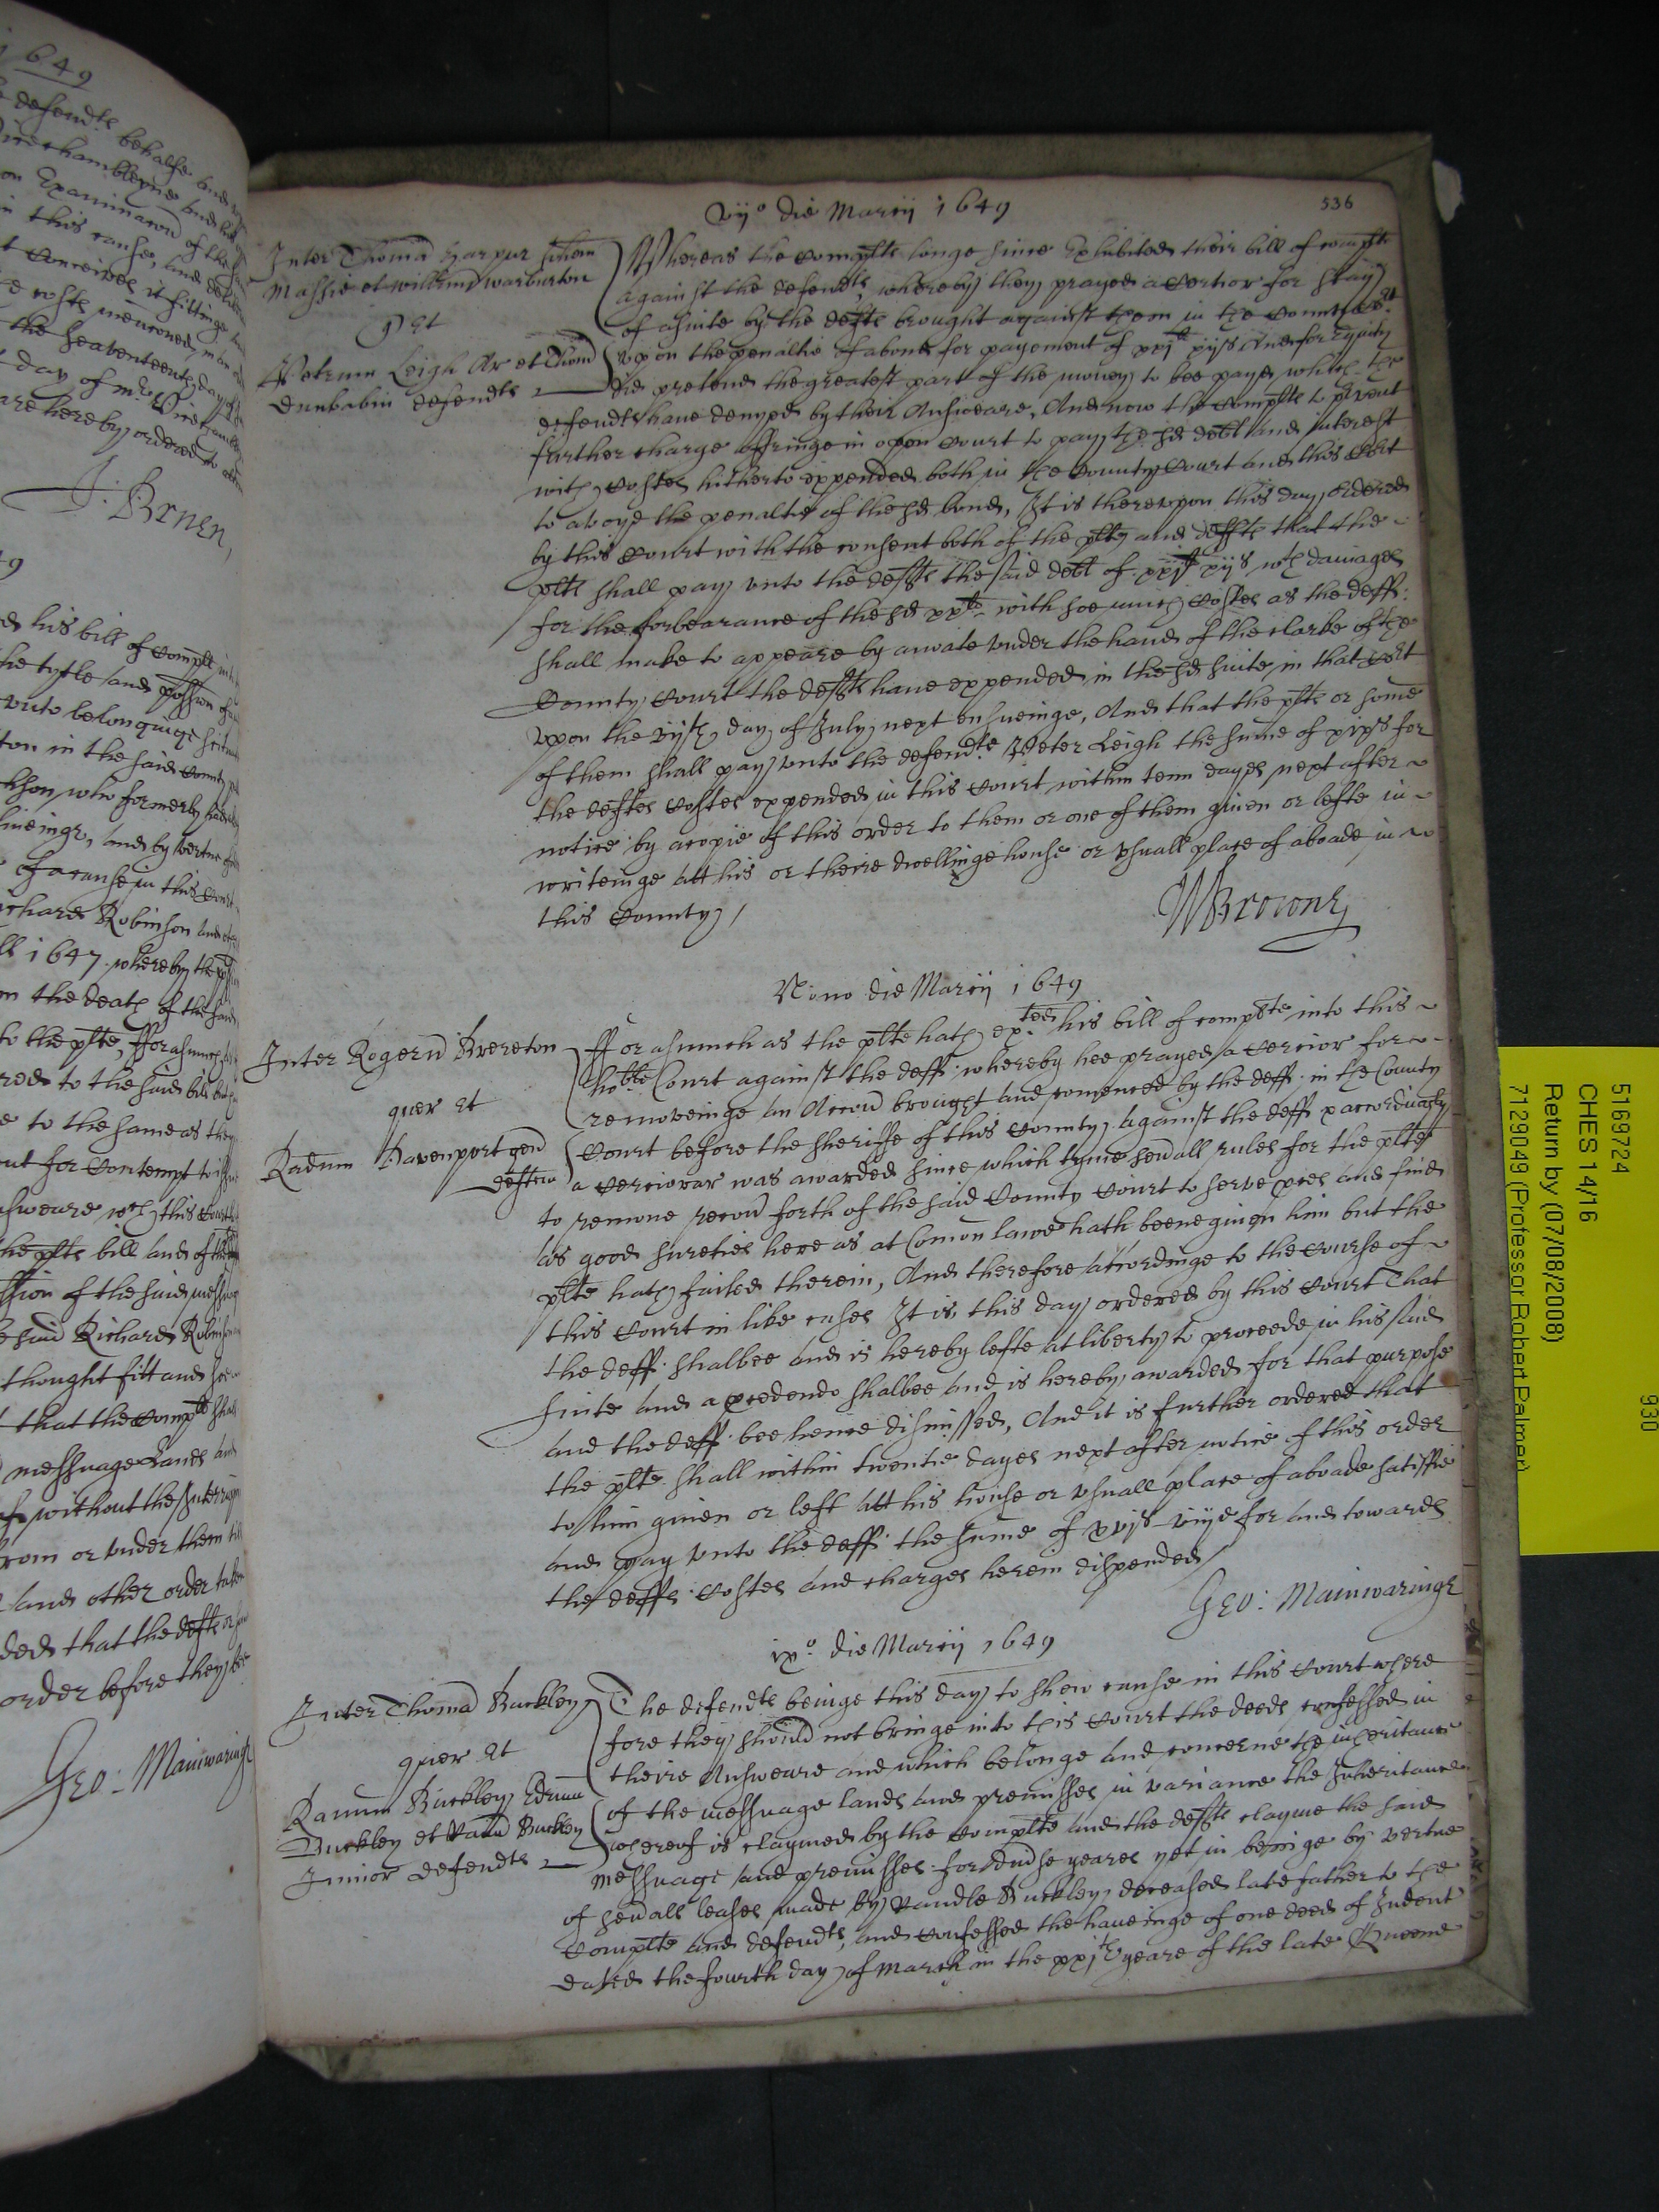 1649
defendts behalfe and
on Examinacon of the
in this cause, and
t conceives it fittinge
costs mencioned, in an
the seaventeenth day of
day of
are hereby ordered to
J: Bruen,
his bill of Complt
the tytle and possion of
unto belonginge
ton in the said County
who formerly had
and by vertue of
of a cause in this Court
Richard Robinson and
1647. whereby the
the death of the said
to the plte, fforasmuch
to the said bill
to the same as they
out for Contempt
Answeare wch this Court
the plts bill and of the
of the said messuage
said Richard Robinson
thought fitt and soe
that the Complt shall
messuage Lands and
without the Interrupcon
from or under them till
and other order taken
that the defts or
order before they bee
Geo: Mainwaringe
536
vijo die Marcij 1649
Inter Thomā Harpur
Massie et willmm warburton
q et
Petrum Leigh Ar et Thomā
Dunbabin defendts
Whereas the Complts longe since Exhibited their bill of complte
against the defendts, whereby they prayed a Certior for stay
of a suite by the defts brought against them in the County Cort
upon the penaltie of a bond for payement of xxjli xijs And for Equity
did pretend the greatest part of the money to bee payd, which the
defendts have denyed by their Answeare, And now the Complts to pvent
further charge offringe in open Court to pay the sd debt and interest
with Costes hitherto expended both in the County Court and this Cort
to avoyd the penaltie of the sd bond, It is thereupon this day ordered
by this Court with the consent both of the plts and deffts that the
plts shall pay unto the deffts the said debt of xxjli xijs wth damages
for the forbearance of the sd xxli with soe much Costes as the deffs:
shall make to appeare by a noate under the hand of the clarke of the
County Court the deffts have expended in the sd suite in that Cort
upon the vijth day of July next ensueinge, And that the plts or some
of them shall pay unto the defendte Peter Leigh the sume of xixs for
the deftes Costes expended in this Court within tenn dayes next after
notice by a copie of this order to them or one of them given or lefte in
writeinge att his or theire dwellinge house or usuall place of aboade in
this County /
W Browne
Nono die Marcij 1649
Inter Rogerū Brereton
quer et
Radum Davenport gen
Forasmuch as the plte hath exted his bill of complte into this
hoble Court against the deff. whereby hee prayed a Cercior for
removeinge an Accon brought and comenced by the deff. in the County
Court before the Sheriffe of this County against the deff accordingly
a Cerciorar was awarded since which tyme sevall rules for the plte
to remove record forth of the said County Court to serve pces and find
as good sureties here as at Comon lawe hath beene given him but the
plte hath failed therein, And therefore accordinge to the course of
this Court in like cases It is this day ordered by this Court That
the deff. shalbee and is hereby lefte at liberty to proceede in his said
suite and a pcedendo shalbee and is hereby awarded for that purpose
and the deff. bee hence dismissed, And it is further ordered that
the plte. shall within twentie dayes next after notice of this order
to him given or left att his house or usuall place of aboade satisfie
and pay unto the deff. the sume of xvjs viijd for and towards
the deffs: Costes and charges herein dispended /
Geo: Mainwaringe
ixo: die Marcij 1649
Inter Thomā Buckley
quer et
Ranum Buckley Edrum
Buckley et Ranū Buckley
Junior defendts
The defendts beinge this day to shew cause in this Court where
fore they should not bringe into this Court the deeds confessed in
theire Answeare and which belonge and concerne the inheritance
of the messuage lands and premisses in variance the Inheritance
whereof is claymed by the Complte and the deffts clayme the said
messuage and premisses for divse yeares yet in beinge by vertue
of sevall leases made by Randle Buckley deceased late father to the
Complte and defendts, and confessed the haveinge of one deed of Indent
dated the fourth day of March in the xxjth yeare of the late Queene
5169724
930
CHES 14/16
Return by (07/08/2008)
7129049 (Professor Robert Palmer)